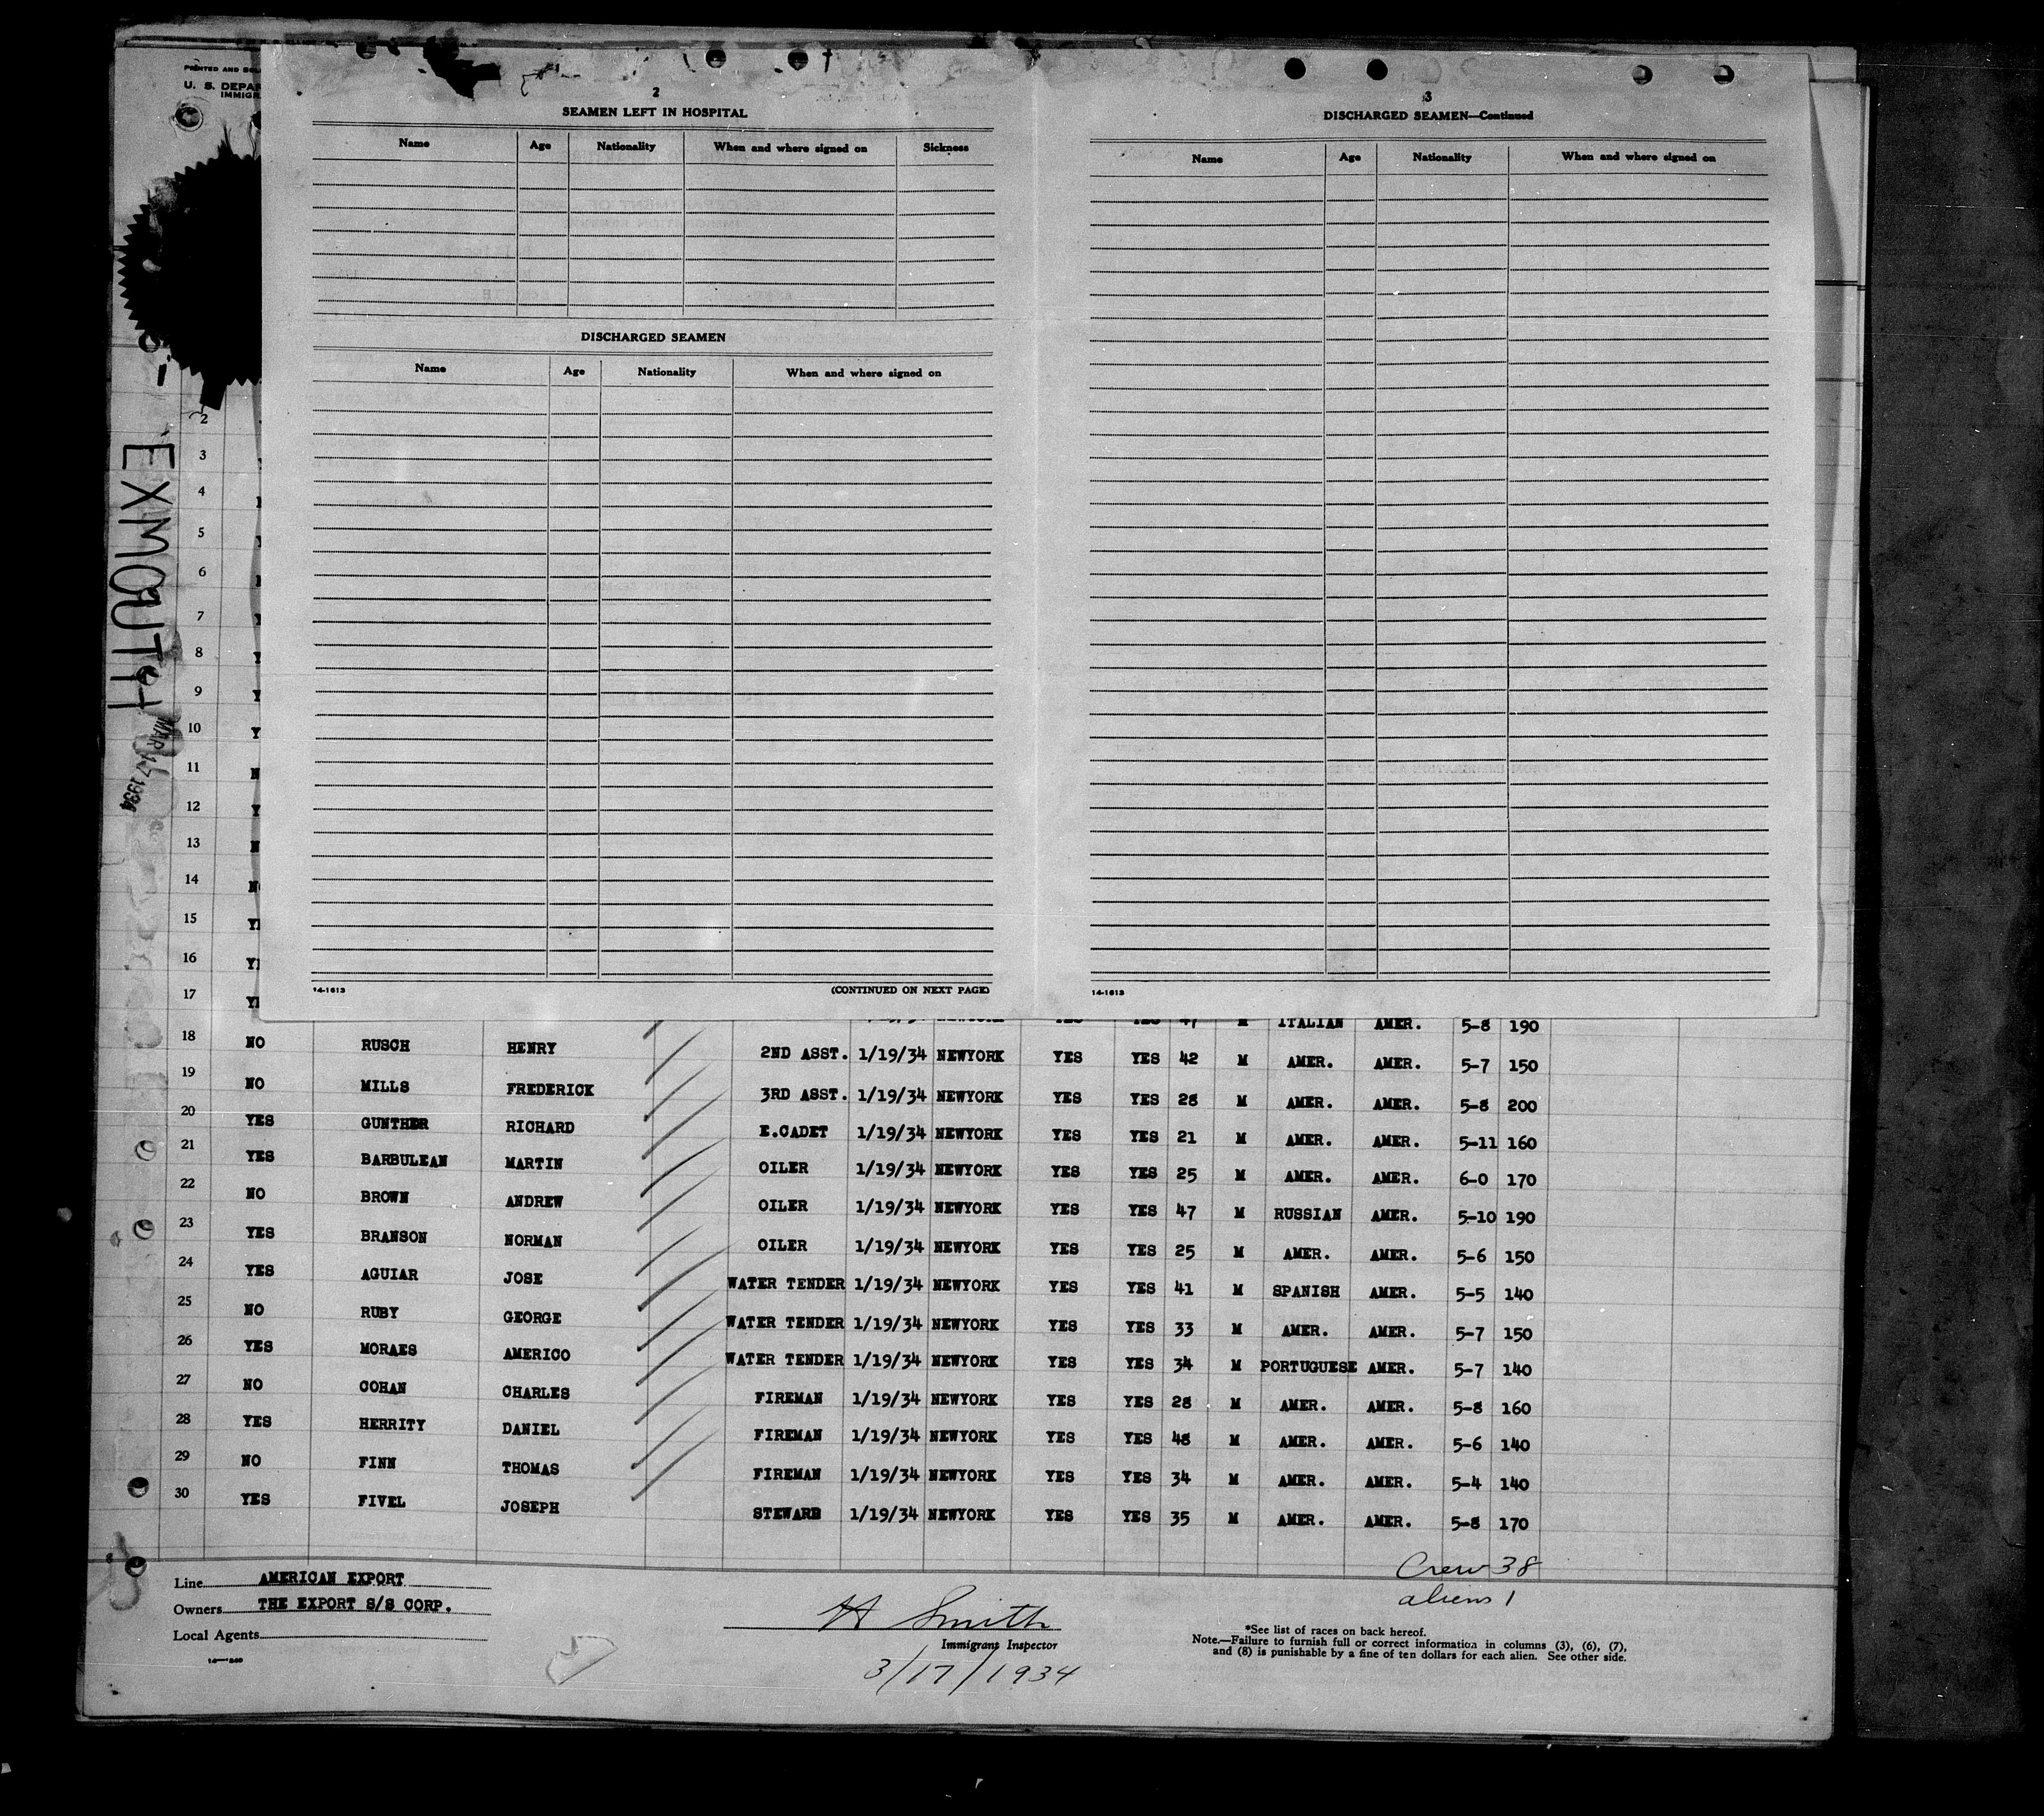 PRINTED AND SOL
U. S. DEPAR
IMMIGR
2
SEAMEN LEFT IN HOSPITAL
Name Age Nationality When and where signed on Sickness
DISCHARGED SEAMEN
Name Age Nationality When and where signed on
14-1613 (CONTINUED ON NEXT PAGE)
3
DISCHARGED SEAMEN—Continued
Name Age Nationality When and where signed on
14-1613
EXMOUTH
MAR 17 1934
2
3
4
5
6
7
8
9
10
11
12
13
14
15
16
17 47 M ITALIAN AMER. 5-8 190
18 NO RUSCH HENRY 2ND ASST. 1/19/34 NEWYORK YES YES 42 M AMER. AMER. 5-7 150
19 NO MILLS FREDERICK 3RD ASST. 1/19/34 NEWYORK YES YES 28 M AMER. AMER. 5-8 200
20 YES GUNTHER RICHARD E.CADET 1/19/34 NEWYORK YES YES 21 M AMER. AMER. 5-11 160
21 YES BARBULEAN MARTIN OILER 1/19/34 NEWYORK YES YES 25 M AMER. AMER. 6-0 170
22 NO BROWN ANDREW OILER 1/19/34 NEWYORK YES YES 47 M RUSSIAN AMER. 5-10 190
23 YES BRANSON NORMAN OILER 1/19/34 NEWYORK YES YES 25 M AMER. AMER. 5-6 150
24 YES AGUIAR JOSE WATER TENDER 1/19/34 NEWYORK YES YES 41 M SPANISH AMER. 5-5 140
25 NO RUBY GEORGE WATER TENDER 1/19/34 NEWYORK YES YES 33 M AMER. AMER. 5-7 150
26 YES MORAES AMERICO WATER TENDER 1/19/34 NEWYORK YES YES 34 M PORTUGUESE AMER. 5-7 140
27 NO COHAN CHARLES FIREMAN 1/19/34 NEWYORK YES YES 28 M AMER. AMER. 5-8 160
28 YES HERRITY DANIEL FIREMAN 1/19/34 NEWYORK YES YES 48 M AMER. AMER. 5-6 140
29 NO FINN THOMAS FIREMAN 1/19/34 NEWYORK YES YES 34 M AMER. AMER. 5-4 140
30 YES FIVEL JOSEPH STEWARD 1/19/34 NEWYORK YES YES 35 M AMER. AMER. 5-8 170
Crew 38
aliens 1
Line AMERICAN EXPORT
Owners THE EXPORT S/S CORP.
Local Agents
14—1240
H Smith
Immigrant Inspector
3/17/1934
*See list of races on back hereof.
Note.—Failure to furnish full or correct information in columns (3), (6), (7),
and (8) is punishable by a fine of ten dollars for each alien. See other side.